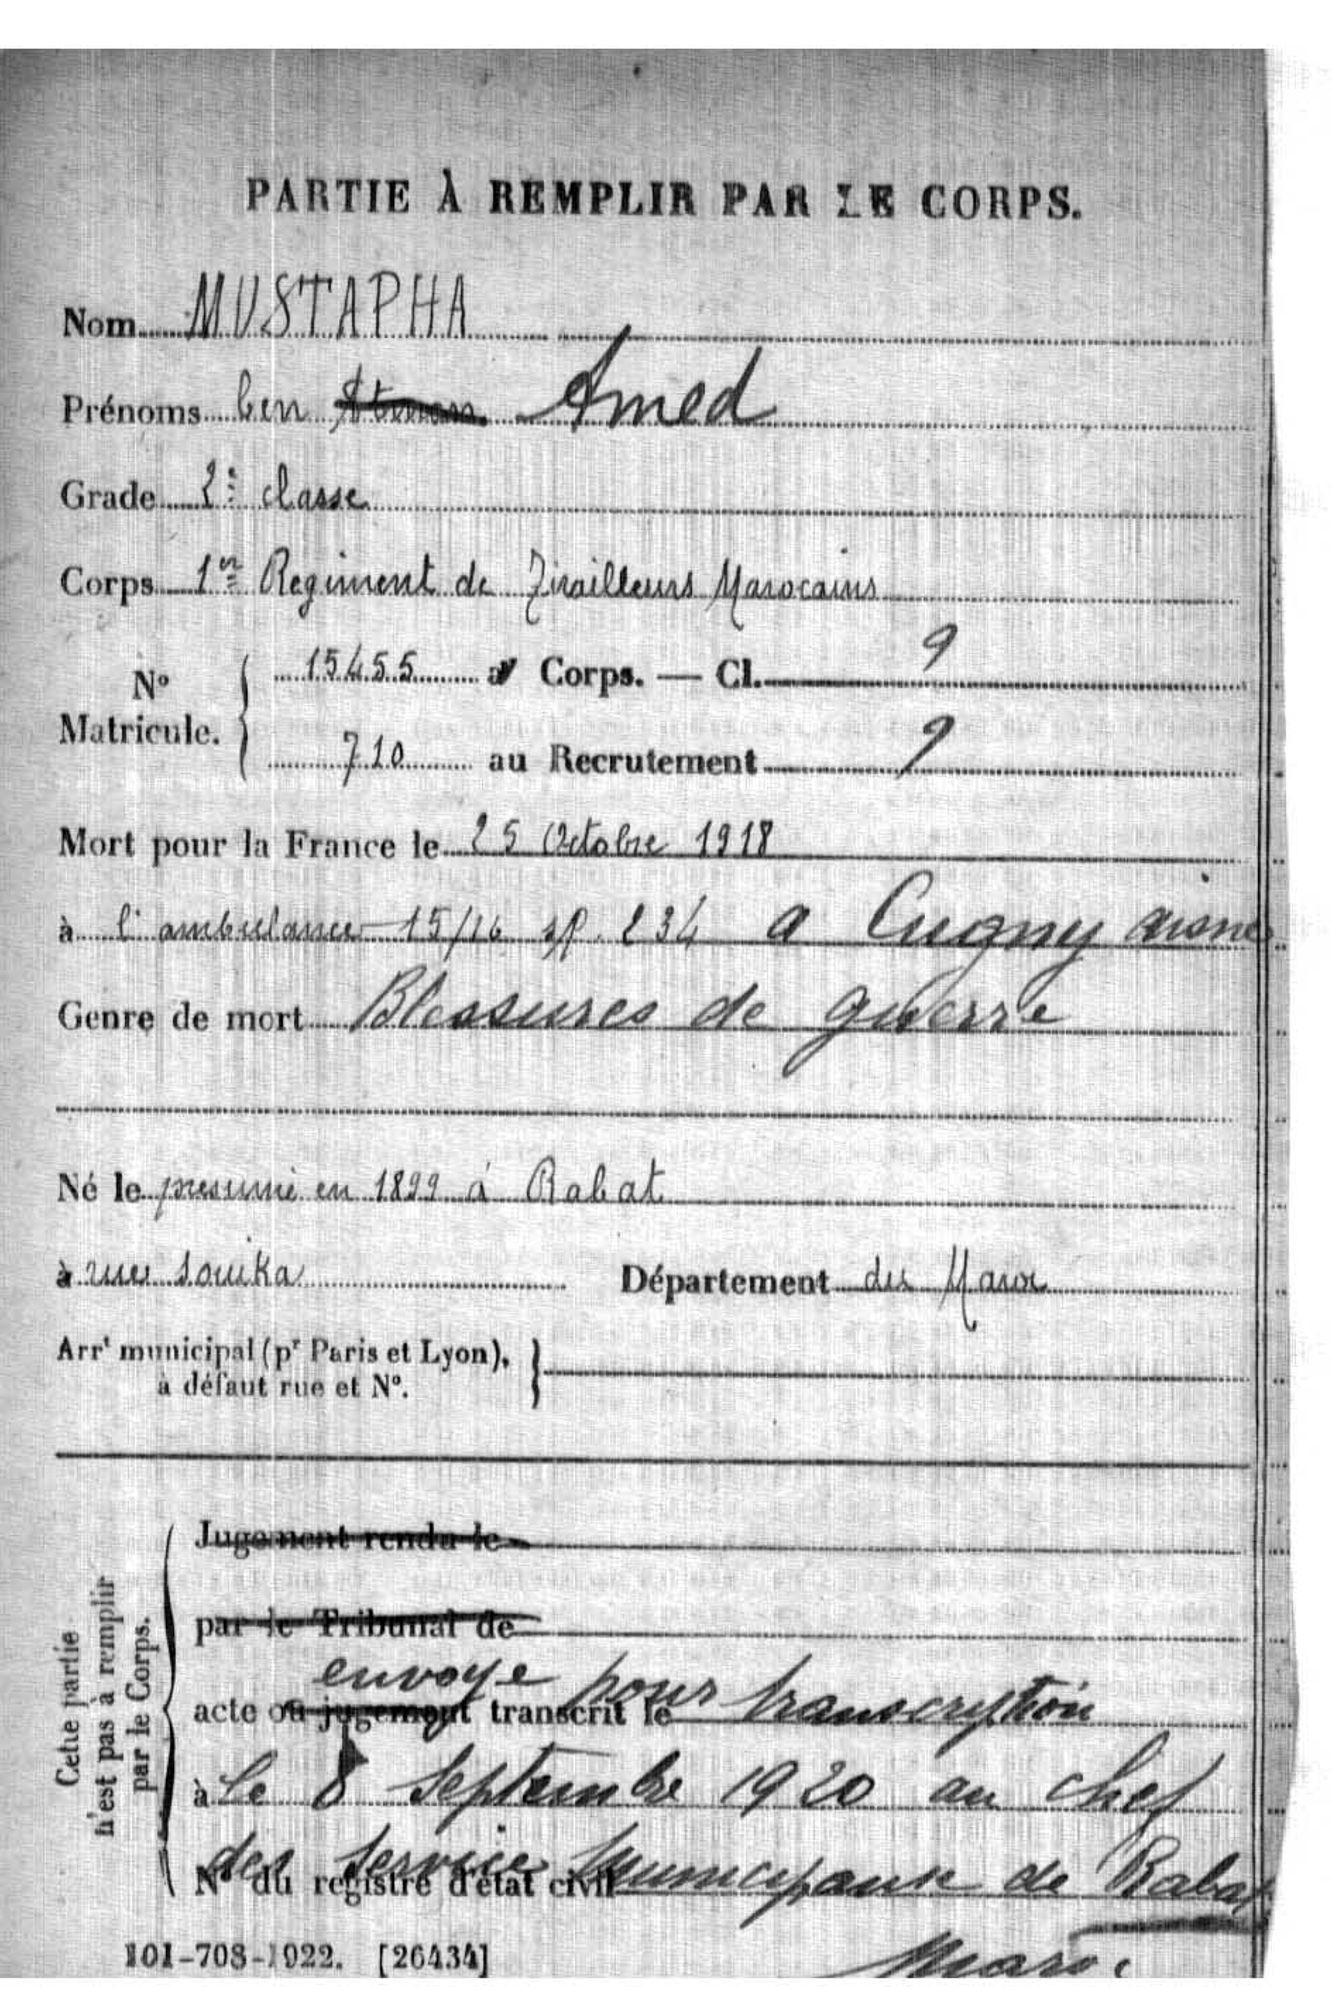 PARTIE À REMPLIR PAR LE CORPS.
Nom MUSTAPHA
Prénoms ben Amed
Grade 2e classe
Corps 1er Regiment de Tirailleurs Marocains
No Matricule. 15455 au Corps. — Cl. 9
710 au Recrutement 9
Mort pour la France le 25 Octobre 1918
à l'ambulance 15/16 SP. 234 a Cugny aisne
Genre de mort Blessures de guerre
Né le presumé en 1899 à Rabat
à rue Souika Département du Maroc
Arrt municipal (pr Paris et Lyon),
à défaut rue et No.
Cette partie
n'est pas à remplir
par le Corps.
Jugement rendu le
par le Tribunal de
envoye pour transcription
acte ou jugement transcrit le
à le 8 Septembre 1920 au chef
des Service Municipaux de Rabat
No du registre d'état civil
Maroc
101-708-1922. [26434]